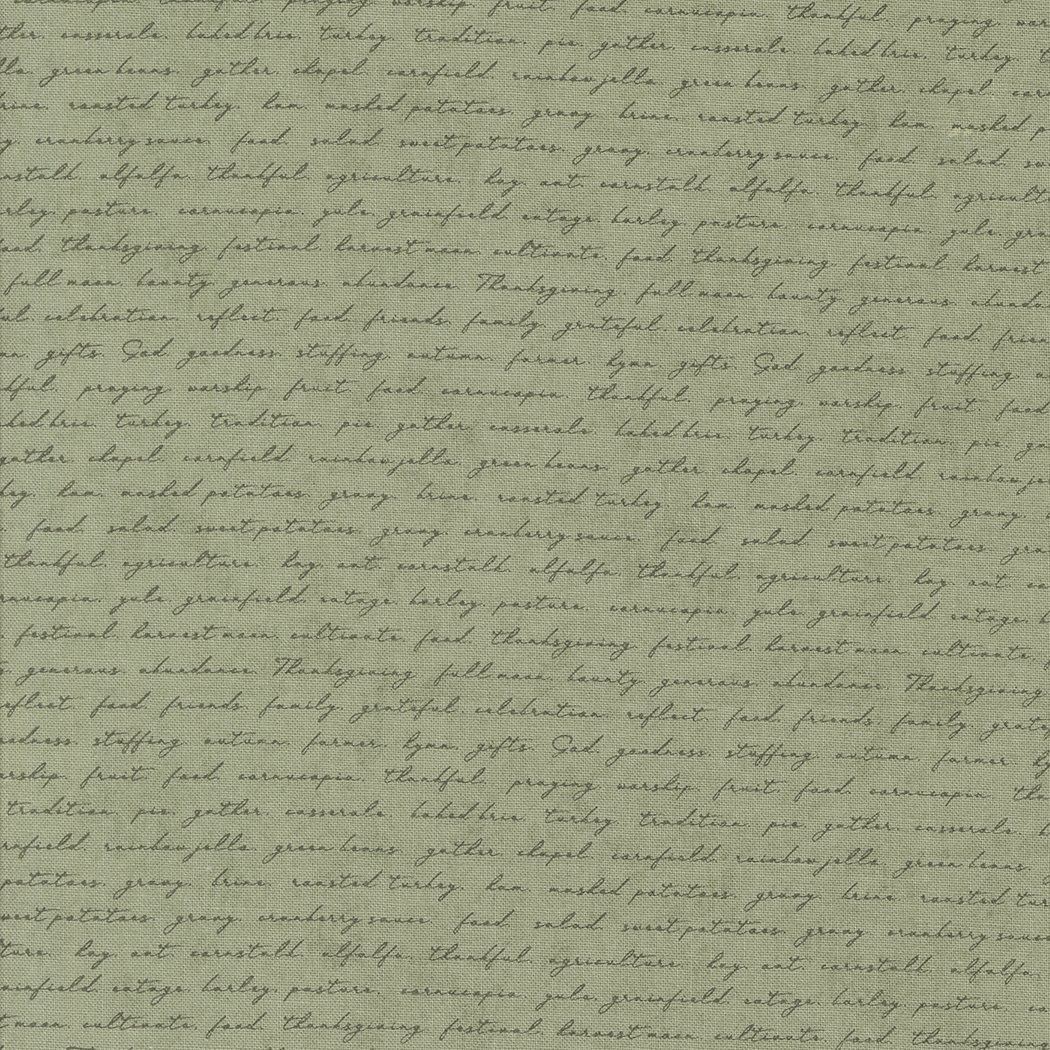 cornucopia. thankful. praying worship. fruit. food. cornucopia. thankful. praying.
casserole. baked brie. turkey. tradition. pie. gather. casserole. baked brie. turkey.
green beans. gather. chapel. cornfield. rainbow jello. green beans. gather. chapel.
roasted turkey. ham. mashed potatoes. gravy. brine. roasted turkey. ham. mashed
cranberry sauce. food. salad. sweet potatoes. gravy. cranberry sauce. food. salad.
alfalfa. thankful. agriculture. hay. oat. cornstalk. alfalfa. thankful.
pasture. cornucopia. yule. grainfield. eatage. barley. pasture. cornucopia. yule.
thanksgiving. festival. harvest moon. cultivate. food. thanksgiving. festival. harvest
full moon. bounty. generous. abundance. Thanksgiving. full moon. bounty. generous.
celebration. reflect. food. friends. family. grateful. celebration. reflect. food.
gifts. God. goodness. stuffing. autumn. farmer. hymn. gifts. God. goodness. stuffing.
praying. worship. fruit. food. cornucopia. thankful. praying. worship. fruit. food
turkey. tradition. pie. gather. casserole. baked brie. turkey. tradition. pie.
gather. chapel. cornfield. rainbow jello. green beans. gather. chapel. cornfield. rainbow
ham. mashed potatoes. gravy. brine. roasted turkey. ham. mashed potatoes. gravy.
food. salad. sweet potatoes. gravy. cranberry sauce. food. salad. sweet potatoes.
thankful. agriculture. hay. oat. cornstalk. alfalfa. thankful. agriculture. hay. oat.
yule. grainfield. eatage. barley. pasture. cornucopia. yule. grainfield. eatage.
festival. harvest moon. cultivate. food. thanksgiving. festival. harvest moon. cultivate.
generous. abundance. Thanksgiving. full moon. bounty. generous. abundance. Thanksgiving
food. friends. family. grateful. celebration. reflect. food. friends. family.
stuffing. autumn. farmer. hymn. gifts. God. goodness. stuffing. autumn. farmer.
fruit. food. cornucopia. thankful. praying. worship. fruit. food. cornucopia.
tradition. pie. gather. casserole. baked brie. turkey. tradition. pie. gather. casserole.
rainbow jello. green beans. gather. chapel. cornfield. rainbow jello. green beans.
potatoes. gravy. brine. roasted turkey. ham. mashed potatoes. gravy. brine. roasted
potatoes. gravy. cranberry sauce. food. salad. sweet potatoes. gravy. cranberry sauce
hay. oat. cornstalk. alfalfa. thankful. agriculture. hay. oat. cornstalk. alfalfa.
eatage. barley. pasture. cornucopia. yule. grainfield. eatage. barley. pasture.
moon. cultivate. food. thanksgiving. festival. harvest moon. cultivate. food. thanksgiving